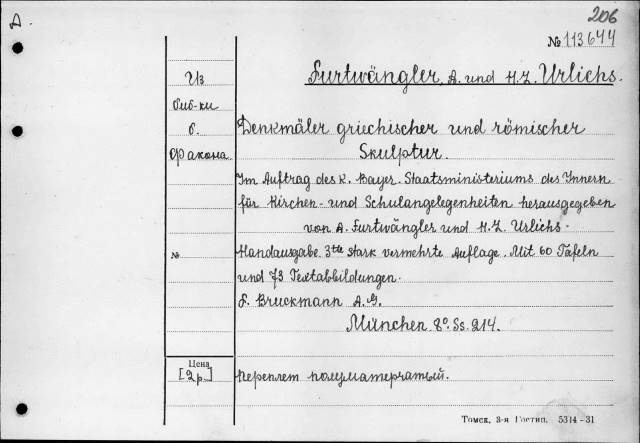 206
Д.
№ 113644
Furtwängler, A. und H. L. Urlichs.
Из
биб-ки
б.
Факона.
Denkmäler griechischer und römischer
Skulptur.
Im Auftrag des K. Bayer. Staatsministeriums des Innern
für Kirchen- und Schulangelegenheiten herausgegeben
von A. Furtwängler und H. L. Urlichs.
№
Handausgabe. 3te stark vermehrte Auflage. Mit 60 Tafeln
und 73 Textabbildungen.
F. Bruckmann A. G.
München. 8°. Ss. 214.
Цена
[2 р.]
Переплет полуматерчатый.
Томск, 3-я Гостип. 5314-31